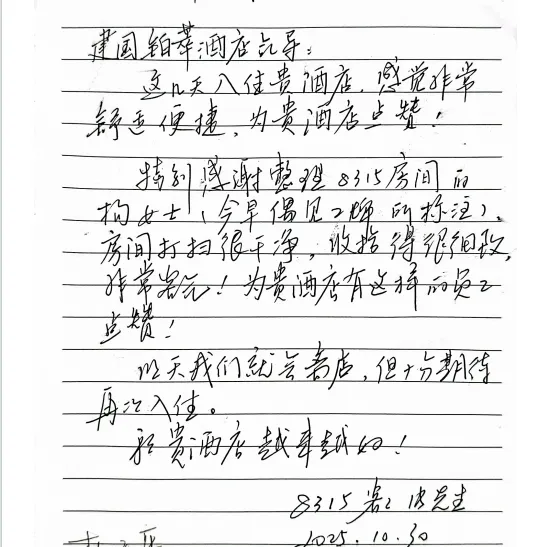 建国铂萃酒店领导：
这几天入住贵酒店，感觉非常
舒适便捷，为贵酒店点赞！
特别感谢整理8315房间的
杨女士（今早偶见工牌所标注）。
房间打扫很干净，收拾得很细致，
非常漂亮！为贵酒店有这样的员工
点赞！
明天我们就会离店，但十分期待
再次入住。
祝贵酒店越来越好！
8315 客人 先生
2025.10.30